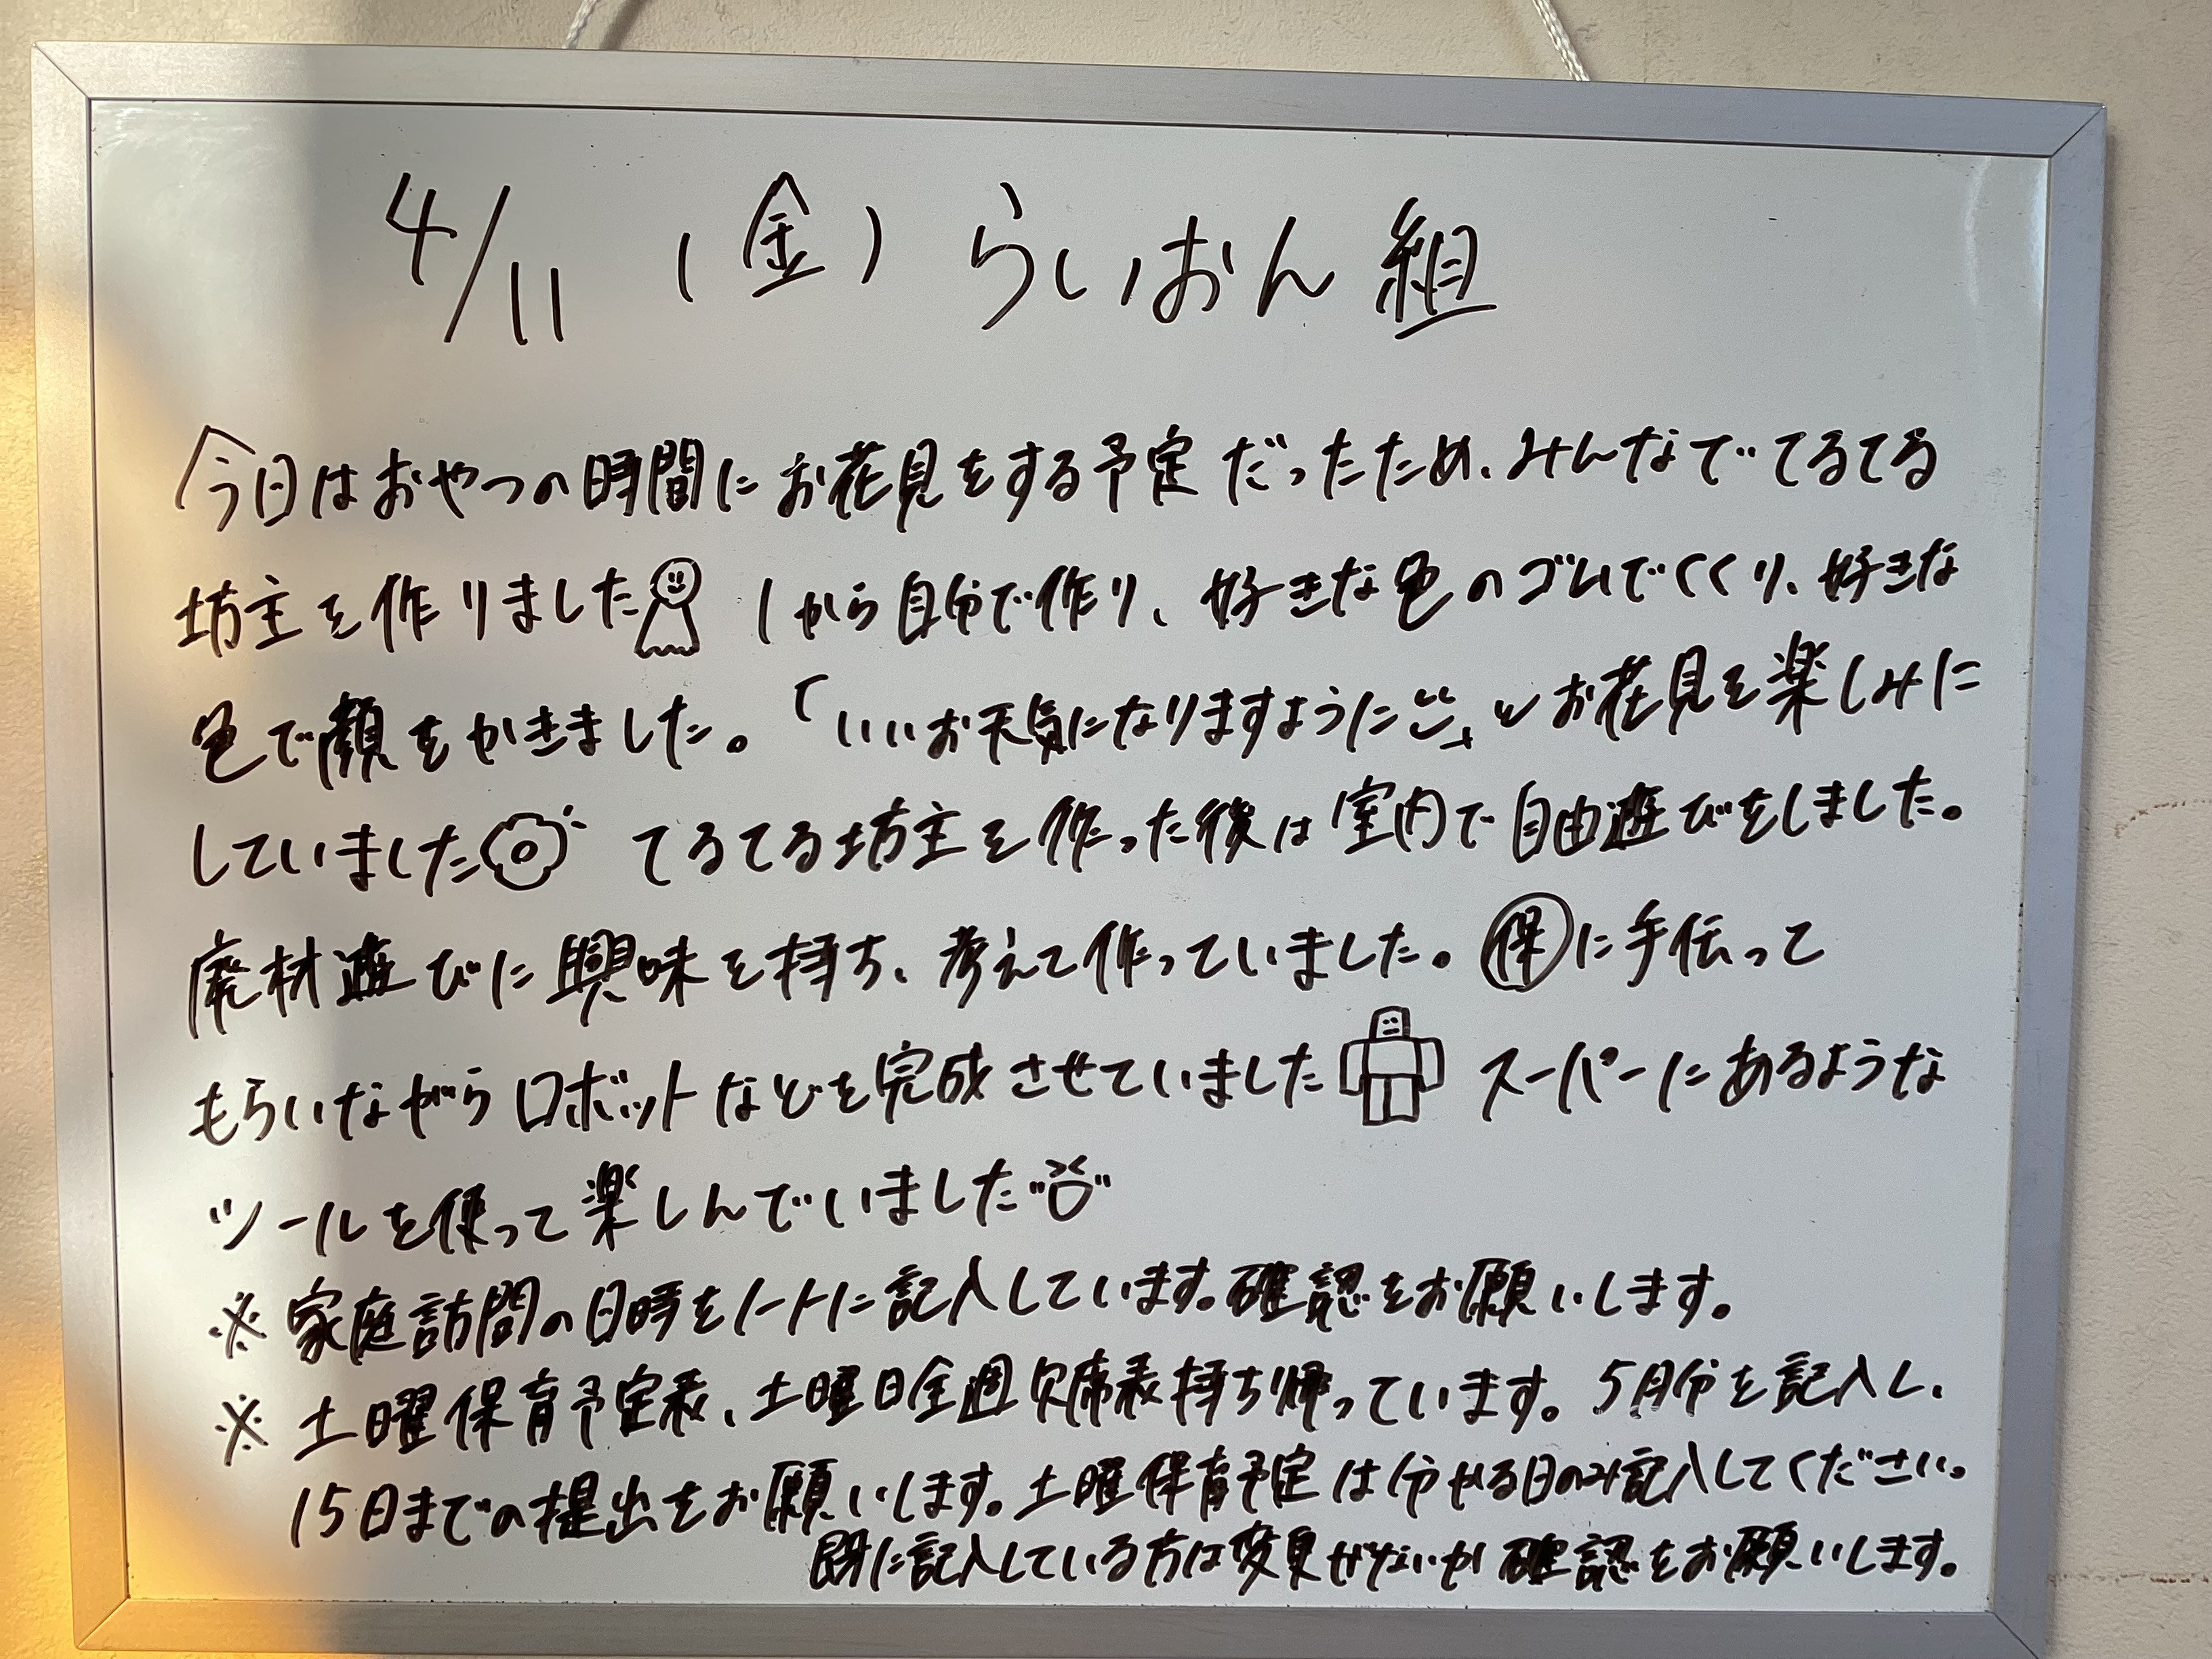 4/11 (金) らいおん組
今日はおやつの時間にお花見をする予定だったため、みんなでてるてる
坊主を作りました 1から自分で作り、好きな色のゴムでくくり、好きな
色で顔をかきました。「いいお天気になりますように」とお花見を楽しみに
していました てるてる坊主を作った後は室内で自由遊びをしました。
廃材遊びに興味を持ち、考えて作っていました。㋭に手伝って
もらいながらロボットなどを完成させていました スーパーにあるような
ツールを使って楽しんでいました
※家庭訪問の日時をノートに記入しています。確認をお願いします。
※土曜保育予定表、土曜日全週欠席表持ち帰っています。5月分を記入し、
15日までの提出をお願いします。土曜保育予定は分かる日のみ記入してください。
既に記入している方は変更がないか確認をお願いします。